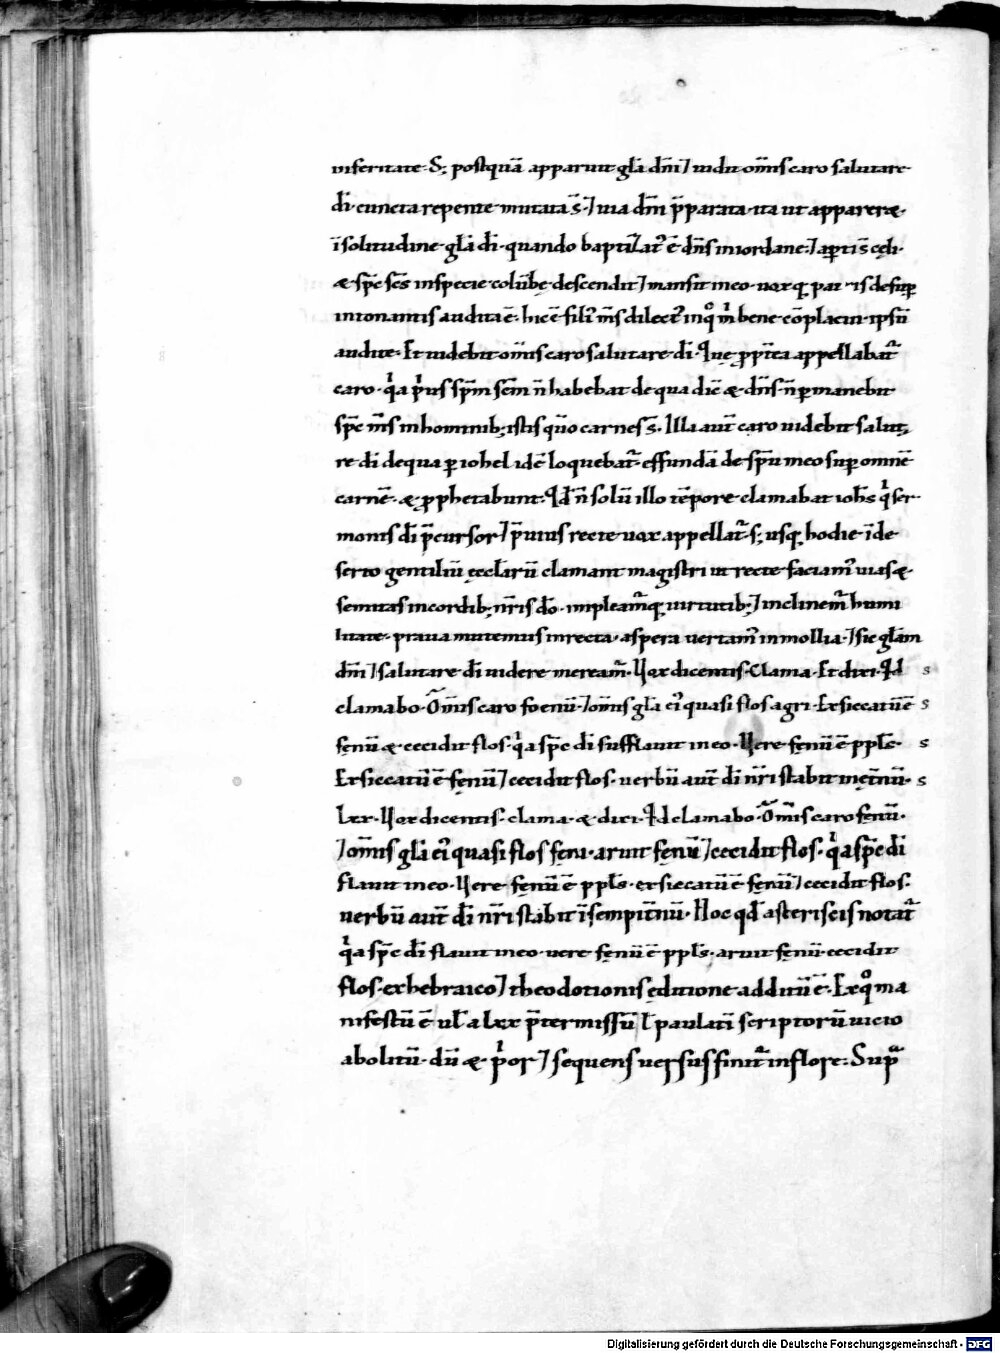 inferitate. S; postquā apparuit gl̄a dn̄i ⁊ uidit om̄is caro salutare
dī. cuncta repente mutata s̄. ⁊ uia dn̄i p̄parata. ita ut appareræ.
ī solitudine gl̄a dī. quando baptizat᷒ ē dn̄s in iordane. ⁊ aptis cęli.
æ sp̄c sc̄s in specie colūbę descendit ⁊ mansit in eo. uoxq; pat is desup
intonantis audita ē. hic ē fili᷒ m̄s dilect᷒ in qͦ m̄ bene cōplacui. ipsū
audite. Et uidebit om̄is caro salutare dī. Quę ppt̄ea appellabat᷒
caro. qͥa pͥus sp̄m sc̄m n̄ habebat de qua dic̄ æ dn̄s. n̄ pmanebit
sp̄c m̄s in hominib; istis qͦ carnes s̄. Illi aut̄ caro uidebit saluta
re dī de qua p iohel idē loquebat᷒. effundā de sp̄u meo sup omnē
carnē. æ pphetabunt. Qd̄ n̄ solū illo tēpore clamabat ioh̄s qͥ ser
monis dī p̄cursor ⁊ p̄uius recte uox appellat᷒. s; usq; hodie ī de
serto gentiliū ęccl̄arū clamant magistri ut recte faciam᷒ uias æ
semitas in cordib; nr̄is dō. impleam᷒q; uirtutib; ⁊ inclinem᷒ humi
litate. praua mutemus in recta. aspera uertam᷒ in mollia. ⁊ sic gl̄am
dn̄i ⁊ salutare dī uidere meream᷒. Uox dicentis. Clama. Et dixi. Qd s
clamabo. Om̄is caro foenū. ⁊ om̄is gl̄a ei᷒ quasi flos agri. Exsiccatū ē s
fęnū æ cecidit flos. qͥa sp̄c dī sufflauit in eo. Uere fęnū ē ppl̄s. s
Exsiccatū ē fęnū ⁊ cecidit flos. uerbū aut̄ dī nr̄i stabit in ęt̄nū. s
Lxx. Uox dicentis. clama. æ dixi. Qd clamabo. Om̄is caro fęnū.
⁊ om̄is gl̄a ei᷒ quasi flos feni. aruit fęnū ⁊ cecidit flos. qͥa sp̄c dī
flauit in eo. Uere fęnū ē ppl̄s. exsiccatū ē fęnū ⁊ cecidit flos.
uerbū aut̄ dī nr̄i stabit ī sempit̄nū. Hoc qd̄ asteriscis notat᷒
qͥa sp̄c dī flauit in eo. uere fęnū ē ppl̄s. aruit fęnū. cecidit
flos. ex hebraico ⁊ theodotionis ęditione additū ē. Ex qͦ ma
nifestū ē ul̄ a lxx p̄termissū ł paulatī scriptorū uicio
abolitū. dū æ pͥor ⁊ sequens uersus finit᷒ in flore. Supᷓ